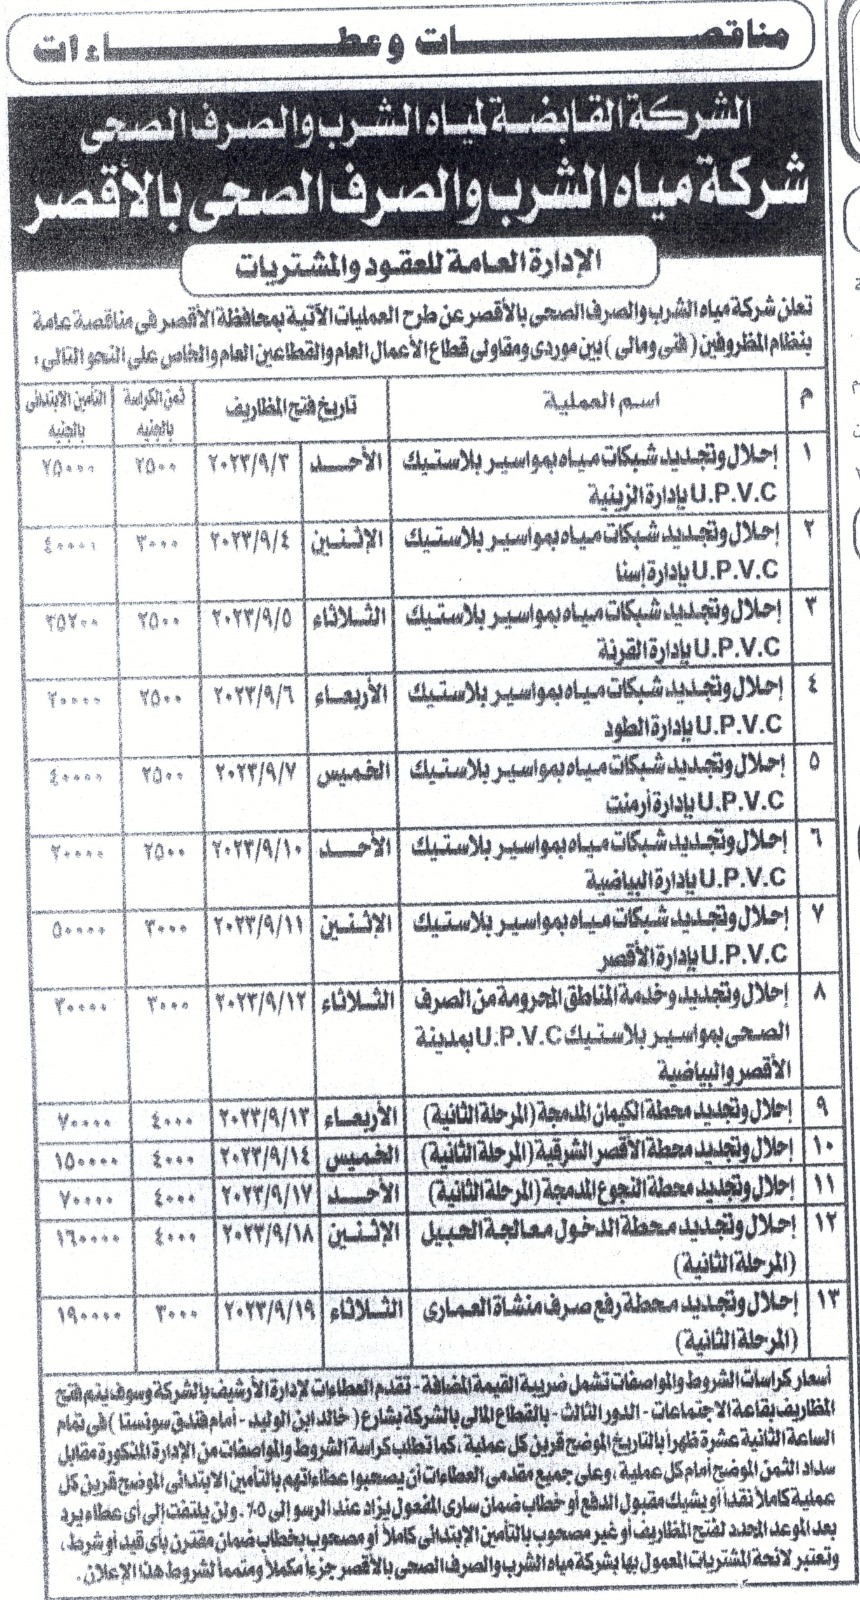 مناقصات وعطاءات
الشركة القابضة لمياه الشرب والصرف الصحى
شركة مياه الشرب والصرف الصحى بالأقصر
الإدارة العامة للعقود والمشتريات
تعلن شركة مياه الشرب والصرف الصحى بالأقصر عن طرح العمليات الآتية بمحافظة الأقصر فى مناقصة عامة
بنظام المظروفين (فنى ومالى) بين موردى ومقاولى قطاع الأعمال العام والقطاعين العام والخاص على النحو التالى:
م اسم العملية تاريخ فتح المظاريف ثمن الكراسة بالجنيه التأمين الابتدائى بالجنيه
١ إحلال وتجديد شبكات مياه بمواسير بلاستيك الأحد ٢٠٢٣/٩/٣ ٢٥٠٠ ٢٥٠٠٠
U.P.V.C بإدارة الزينية
٢ إحلال وتجديد شبكات مياه بمواسير بلاستيك الإثنين ٢٠٢٣/٩/٤ ٣٠٠٠ ٤٠٠٠٠
U.P.V.C بإدارة إسنا
٣ إحلال وتجديد شبكات مياه بمواسير بلاستيك الثلاثاء ٢٠٢٣/٩/٥ ٢٥٠٠
U.P.V.C بإدارة القرنة
٤ إحلال وتجديد شبكات مياه بمواسير بلاستيك الأربعاء ٢٠٢٣/٩/٦ ٢٥٠٠ ٢٠٠٠٠
U.P.V.C بإدارة الطود
٥ إحلال وتجديد شبكات مياه بمواسير بلاستيك الخميس ٢٠٢٣/٩/٧ ٢٥٠٠ ٤٠٠٠٠
U.P.V.C بإدارة أرمنت
٦ إحلال وتجديد شبكات مياه بمواسير بلاستيك الأحد ٢٠٢٣/٩/١٠ ٢٥٠٠ ٢٠٠٠٠
U.P.V.C بإدارة البياضية
٧ إحلال وتجديد شبكات مياه بمواسير بلاستيك الإثنين ٢٠٢٣/٩/١١ ٣٠٠٠ ٥٠٠٠٠
U.P.V.C بإدارة الأقصر
٨ إحلال وتجديد وخدمة المناطق المحرومة من الصرف الثلاثاء ٢٠٢٣/٩/١٢ ٣٠٠٠ ٣٠٠٠٠
الصحى بمواسير بلاستيك U.P.V.C بمدينة
الأقصر والبياضية
٩ إحلال وتجديد محطة الكيمان المدمجة (المرحلة الثانية) الأربعاء ٢٠٢٣/٩/١٣ ٤٠٠٠ ٧٠٠٠٠
١٠ إحلال وتجديد محطة الأقصر الشرقية (المرحلة الثانية) الخميس ٢٠٢٣/٩/١٤ ٤٠٠٠ ١٥٠٠٠٠
١١ إحلال وتجديد محطة النجوع المدمجة (المرحلة الثانية) الأحد ٢٠٢٣/٩/١٧ ٤٠٠٠ ٧٠٠٠٠
١٢ إحلال وتجديد محطة الدخول معالجة الحبيل الإثنين ٢٠٢٣/٩/١٨ ٤٠٠٠ ١٦٠٠٠٠
(المرحلة الثانية)
١٣ إحلال وتجديد محطة رفع صرف منشاة العمارى الثلاثاء ٢٠٢٣/٩/١٩ ٣٠٠٠ ١٩٠٠٠٠
(المرحلة الثانية)
أسعار كراسات الشروط والمواصفات تشمل ضريبة القيمة المضافة - تقدم العطاءات لإدارة الأرشيف بالشركة وسوف يتم فتح
المظاريف بقاعة الاجتماعات - الدور الثالث - بالقطاع المالى بالشركة بشارع (خالد ابن الوليد - أمام فندق سونستا) فى تمام
الساعة الثانية عشرة ظهرا بالتاريخ الموضح قرين كل عملية، كما تطلب كراسة الشروط والمواصفات من الإدارة المذكورة مقابل
سداد الثمن الموضح أمام كل عملية، وعلى جميع مقدمى العطاءات أن يصحبوا عطاءاتهم بالتأمين الابتدائى الموضح قرين كل
عملية كاملاً نقداً أو بشيك مقبول الدفع أو خطاب ضمان سارى المفعول يزاد عند الرسو إلى ٥٪. ولن يلتفت إلى أى عطاء يرد
بعد الموعد المحدد لفتح المظاريف أو غير مصحوب بالتأمين الابتدائى كاملاً أو مصحوب بخطاب ضمان مقترن بأى قيد أو شرط،
وتعتبر لائحة المشتريات المعمول بها بشركة مياه الشرب والصرف الصحى بالأقصر جزءاً مكملاً ومتمماً لشروط هذا الإعلان.